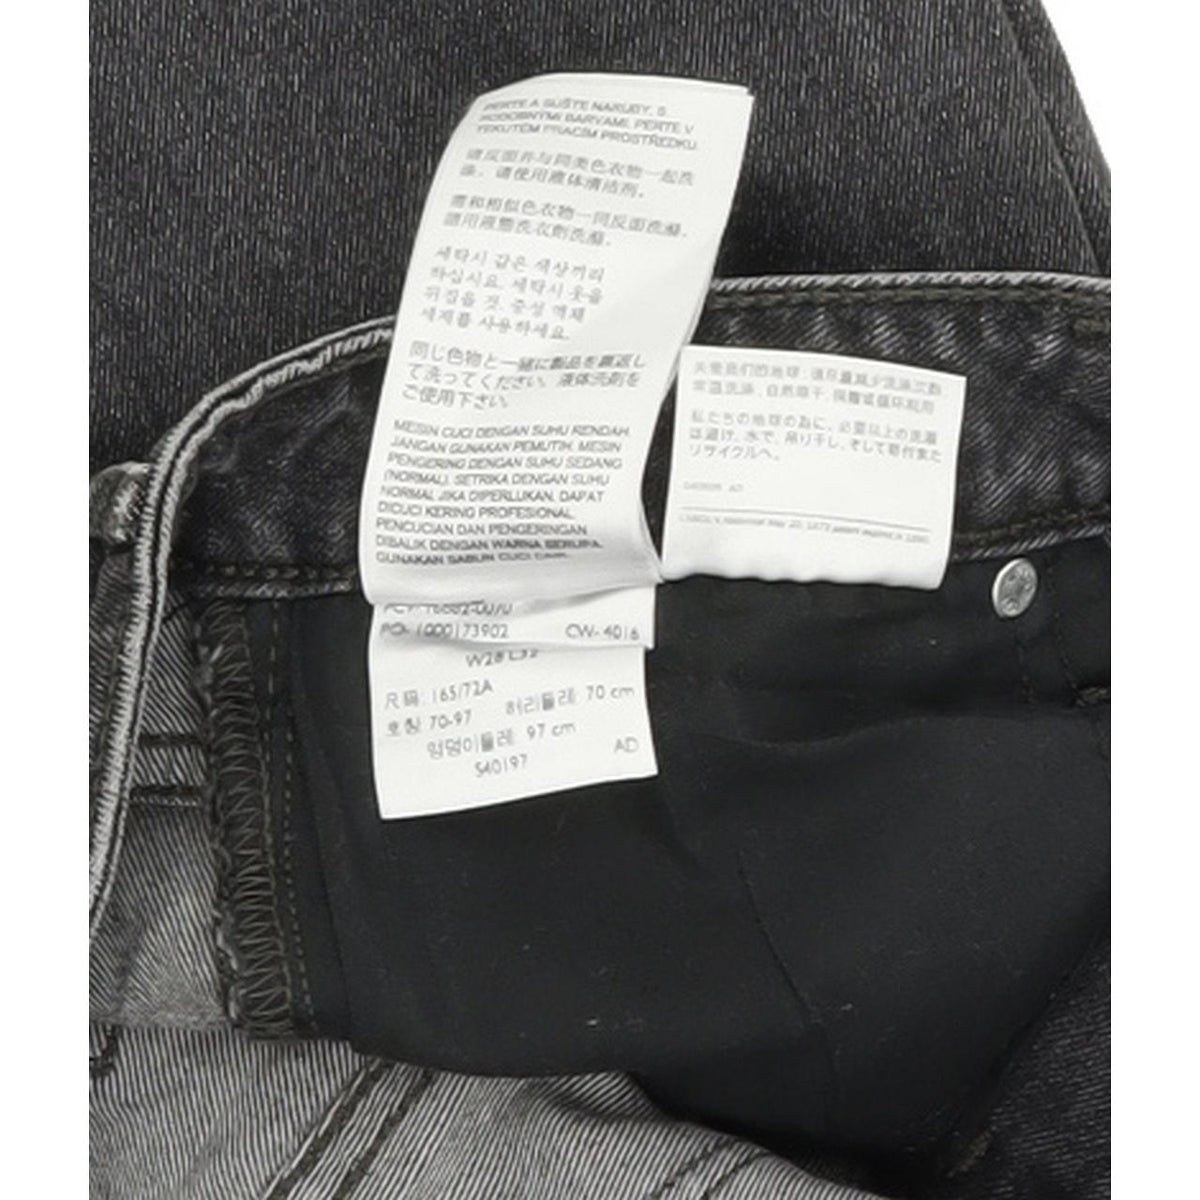 PERTE A SUŠTE NARUBY, S
PODOBNÝMI BARVAMI. PERTE V
TEKUTÉM PRACÍM PROSTŘEDKU.
请反面并与同类色衣物一起洗
涤，请使用液体清洁剂。
需和相似色衣物一同反面洗滌，
請用液態洗衣劑洗滌。
세탁시 같은 색상끼리
하십시요. 세탁시 옷을
뒤집을 것. 중성 액체
세제를 사용하세요.
同じ色物と一緒に製品を裏返し
て洗ってください。液体洗剤を
ご使用下さい。
MESIN CUCI DENGAN SUHU RENDAH.
JANGAN GUNAKAN PEMUTIH. MESIN
PENGERING DENGAN SUHU SEDANG
(NORMAL). SETRIKA DENGAN SUHU
NORMAL JIKA DIPERLUKAN. DAPAT
DICUCI KERING PROFESIONAL.
PENCUCIAN DAN PENGERINGAN
DIBALIK DENGAN WARNA SERUPA.
GUNAKAN SABUN CUCI CAIR.
16882-0070
PO- 1000173902 CW- 4016
W28 L32
尺码: 165/72A
호칭: 70-97 허리둘레: 70 cm
엉덩이둘레: 97 cm
S40197 AD
关爱我们的地球：请尽量减少洗涤次数
常温洗涤，自然晾干，捐赠或循环利用
私たちの地球の為に、必要以上の洗濯
は避け、水で、吊り干し、そして寄付また
リサイクルへ。
AD